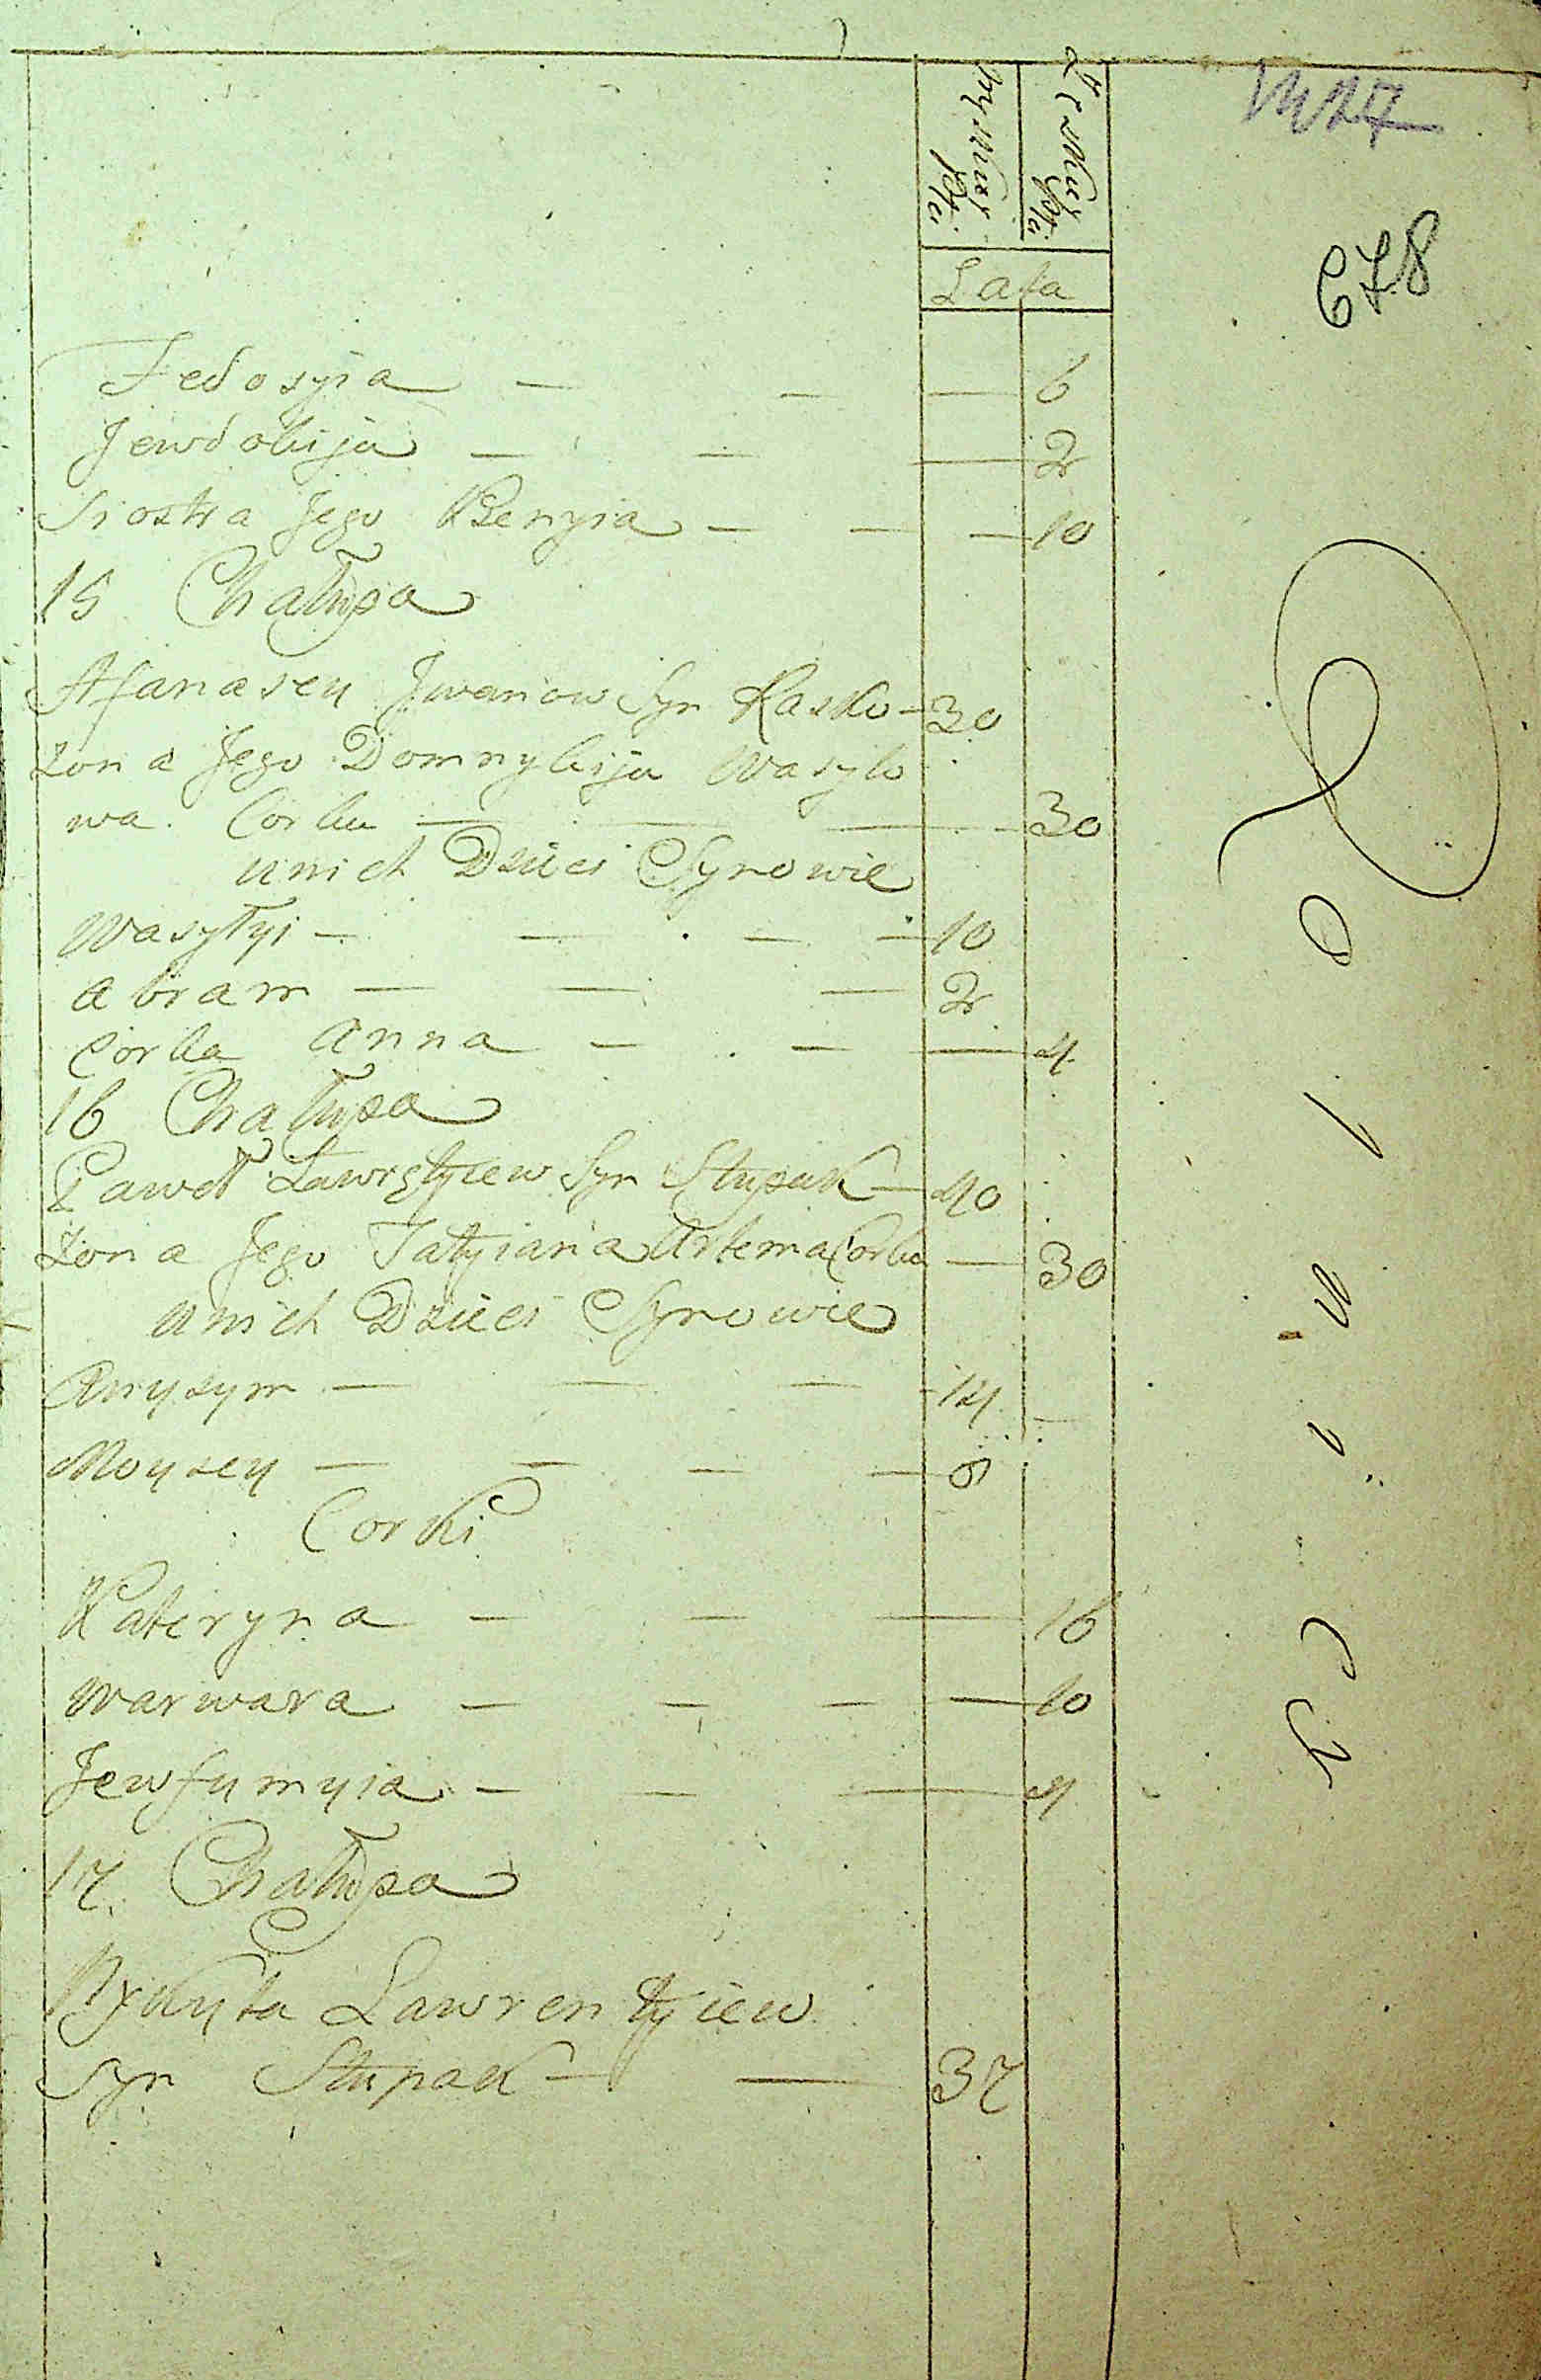 Męskiej Płci Żeńskiej Płci
Lata
678
Fedosyia — — — 6
Jewdokija — — — 2
Siostra Jego Xenyia — — — 10
15 Chałupa
Afanasey Jwanow Syn Rasko — 30
Żona Jego Domnykija Wasylo
wa Corka — — — 30
u nich Dzieci Synowie
Wasyłyi — — — — 10
Abram — — — 2
Corka Anna — — — 4
16 Chałupa
Paweł Ławrętyiew Syn Stupak — 40
Żona Jego Tatyiana Artema Corka — 30
u nich Dzieci Synowie
Anysym — — — 14 —
Moysey — — — — 8
Corki
Kateryna — — — 16
Warwara — — — — 10
Jewfymyia — — — 4
17. Chałupa
Nykyta Lawrentyiew
Syn Stupak — — 37